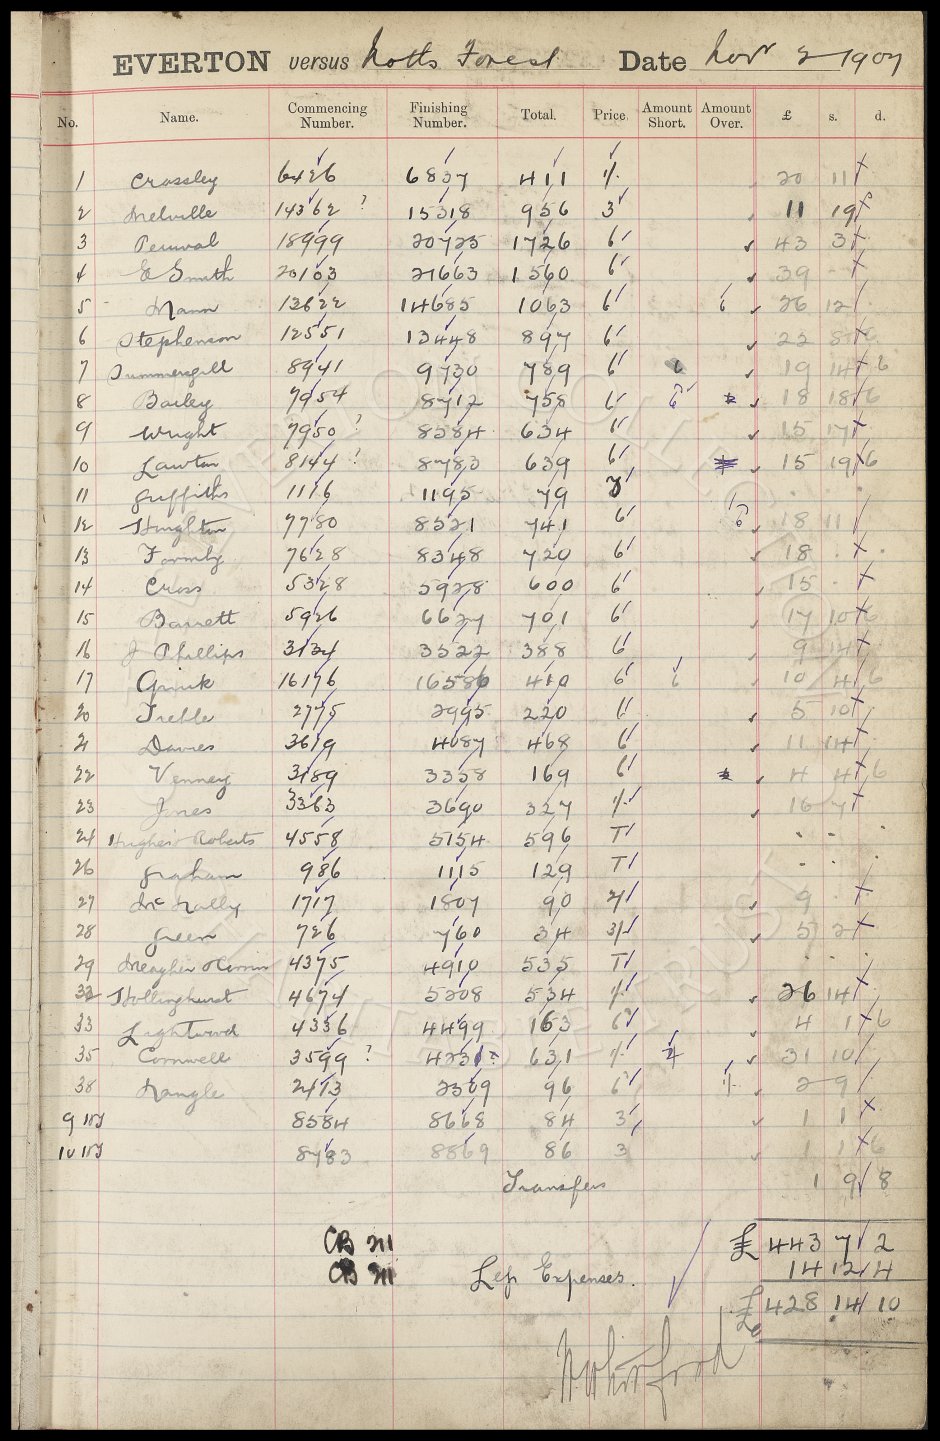 EVERTON versus Notts Forest Date Nov 2 1907
No. Name. Commencing Number. Finishing Number. Total. Price. Amount Short. Amount Over. £ s. d.
1 Crossley 6426 6837 411 1/- 20 11
2 Melville 14362 ? 15318 956 3 11 19
3 Percival 18999 20725 1726 6 43 3
4 E Smith 20103 21663 1560 6 39 - -
5 Mann 13622 14685 1063 6 6 26 12
6 Stephenson 12551 13448 897 6 22 8 6
7 Summersgill 8941 9730 789 6 19 14 6
8 Bailey 7954 8712 758 6 6 18 18 6
9 Wright 7950 ? 8584 634 6 15 17
10 Lawton 8144 ? 8783 639 6 15 19 6
11 Griffiths 1116 1195 79
12 Houghton 7780 8521 741 6 6 18 11
13 Formby 7628 8348 720 6 18 - -
14 Cross 5328 5928 600 6 15 - -
15 Barrett 5926 6627 701 6 17 10 6
16 J Phillips 3134 3522 388 6 9 14
17 16176 16586 410 6 6 10 4 6
20 Treble 2775 2995 220 6 5 10
21 Davies 3619 4087 468 6 11 14
22 Venney 3189 3358 169 6 4 4 6
23 Jones 3363 3690 327 1/- 16 7
24 Hughes & Roberts 4558 5154 596 T
26 Graham 986 1115 129 T
27 McNally 1717 1807 90 2/- 9 - -
28 Green 726 760 34 3/- 5 2
29 Meagher & Harris 4375 4910 535 T
32 Hollinghurst 4674 5208 534 1/- 26 14
33 Lightwood 4336 4499 163 6 4 1 6
35 Cornwell 3599 ? 4231 631 1/- 31 10
38 Nangle 2413 2509 96 6 1/- 2 9
9 8584 8668 84 3 1 1
10 8783 8869 86 3 1 1 6
Transfers 1 9 8
£ 443 7 2
CB 211
CB 211
Less Expenses. 14 12 4
£ 428 14 10